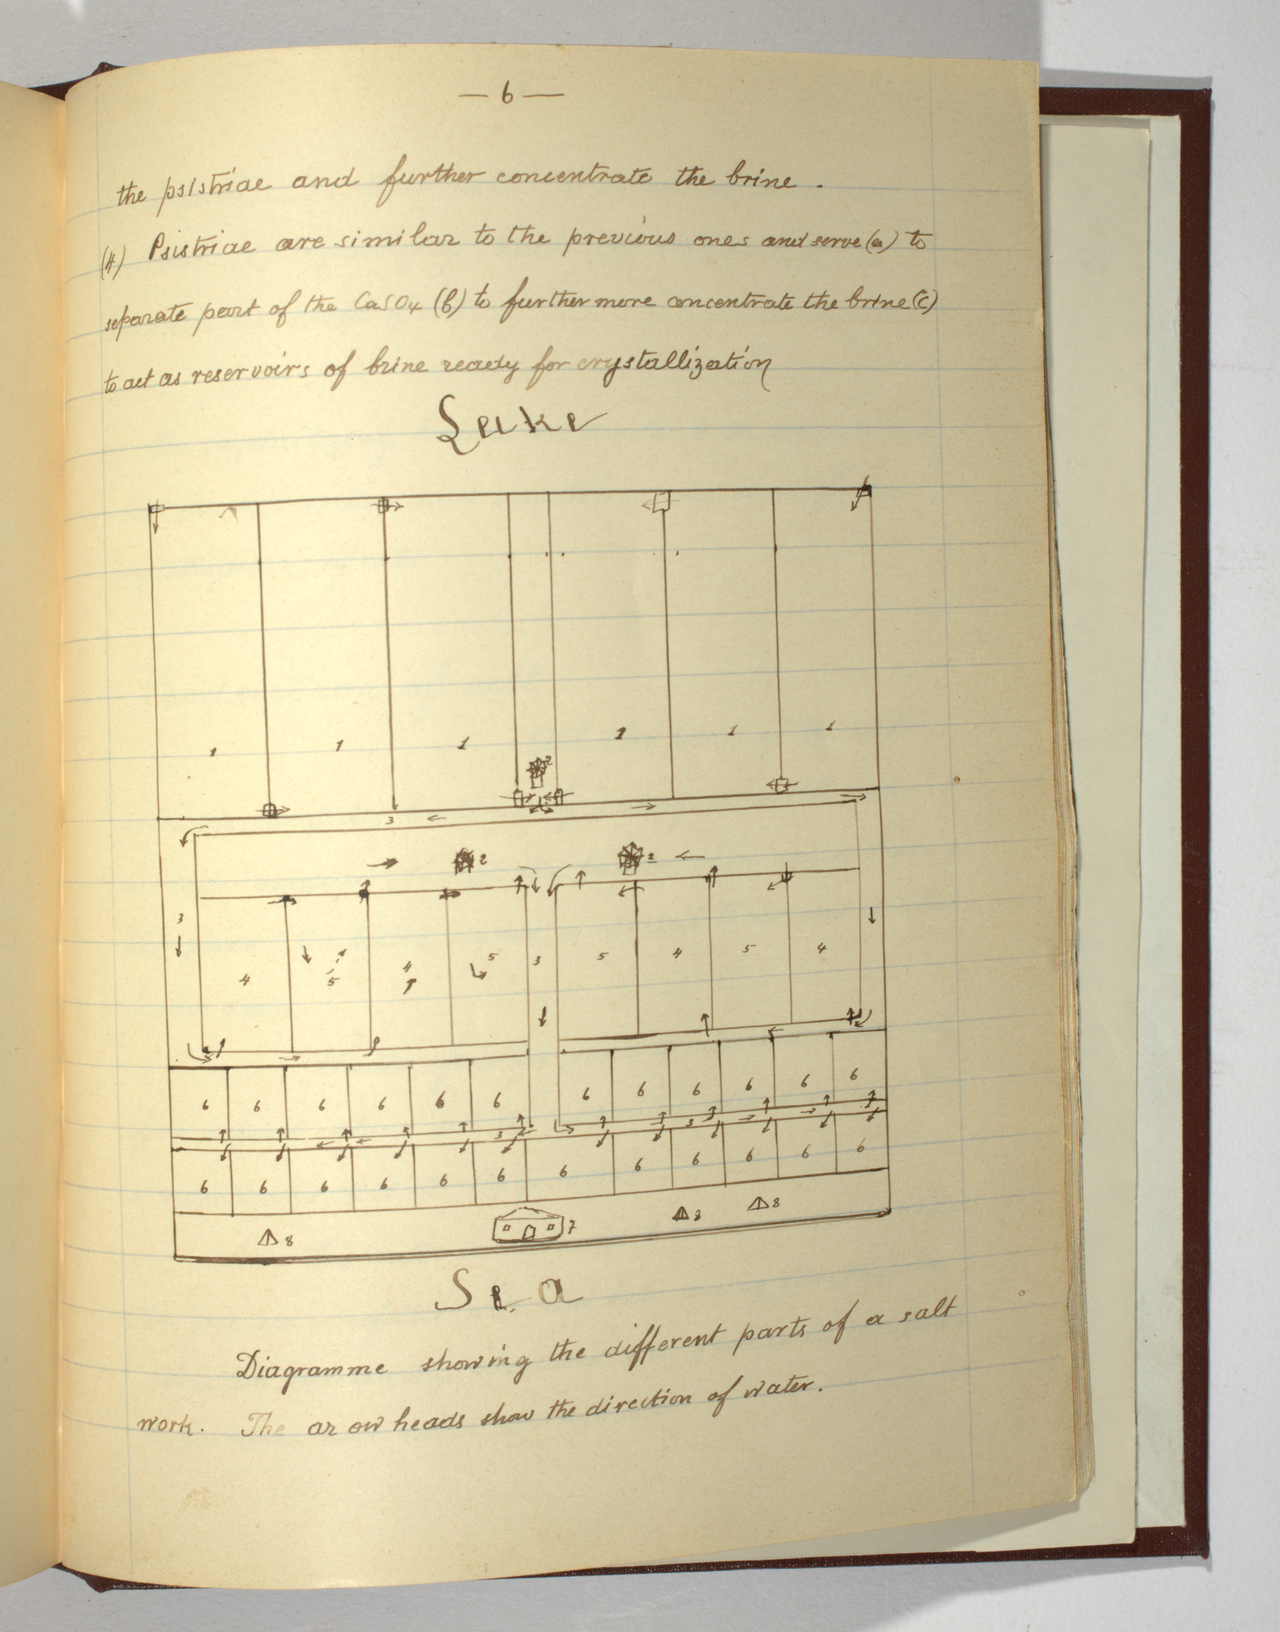 — 6 —
the psistriae and further concentrate the brine .
(4) Psistriae are similar to the previous ones and serve (a) to
separate part of the CaSO4 (b) to further more concentrate the brine (c)
to act as reservoirs of brine ready for crystallization
Lake
1 1 1 1 1 1
2
3
2 2
3
5 3 5 4 5 4
4 5 4
6 6 6 6 6 6 6 6 6 6 6 6
3 3
6 6 6 6 6 6 6 6 6 6 6 6
8 7 8 8
Sea
Diagramme showing the different parts of a salt
work. The ar ow heads show the direction of water.